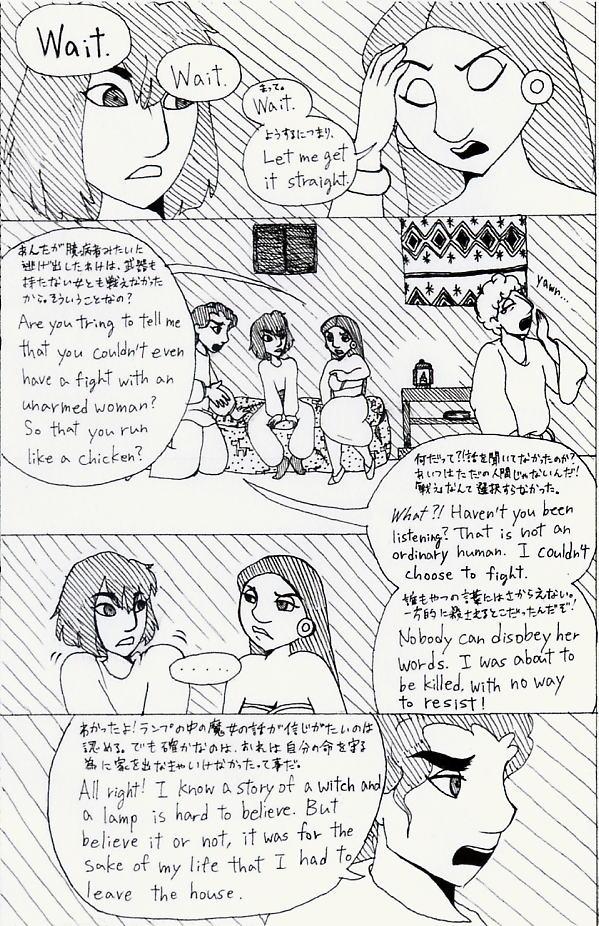 Wait.
Wait.
まって。
Wait.
ようするにつまり、
Let me get
it straight.
あんたが臆病者みたいに
逃げ出したわけは、武器も
持たない女とも戦えなかった
から。そういうことなの？
Are you tring to tell me
that you couldn't even
have a fight with an
unarmed woman?
So that you run
like a chicken?
yawn...
何だって？！話を聞いてなかったのか？
あいつはただの人間じゃないんだ！
戦えなんて選択すらなかった。
What?! Haven't you been
listening? That is not an
ordinary human. I couldn't
choose to fight.
誰もやつの言葉にはさからえない。
一方的に殺されるとこだったんだぞ！
Nobody can disobey her
words. I was about to
be killed, with no way
to resist!
.....
わかったよ！ランプの中の魔女の話が信じがたいのは
認める。でも確かなのは、おれは自分の命を守る
為に家を出なきゃいけなかったって事だ。
All right! I know a story of a witch and
a lamp is hard to believe. But
believe it or not, it was for the
sake of my life that I had to
leave the house.